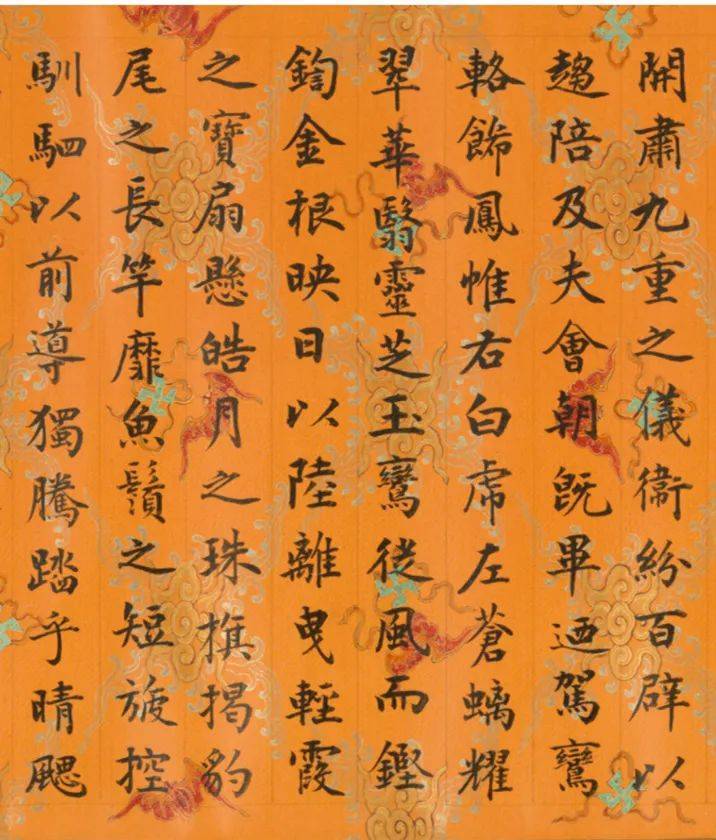 開肅九重之儀衛紛百辟以
趨陪及夫會朝既畢迺駕鸞
輅飾鳳帷右白虎左蒼螭耀
翠華翳靈芝玉鸞從風而鏗
鍧金根映日以陸離曳輕霞
之寶扇懸皓月之珠旗揭豹
尾之長竿靡魚鬚之短控
馴駟以前導獨騰踏乎晴颸